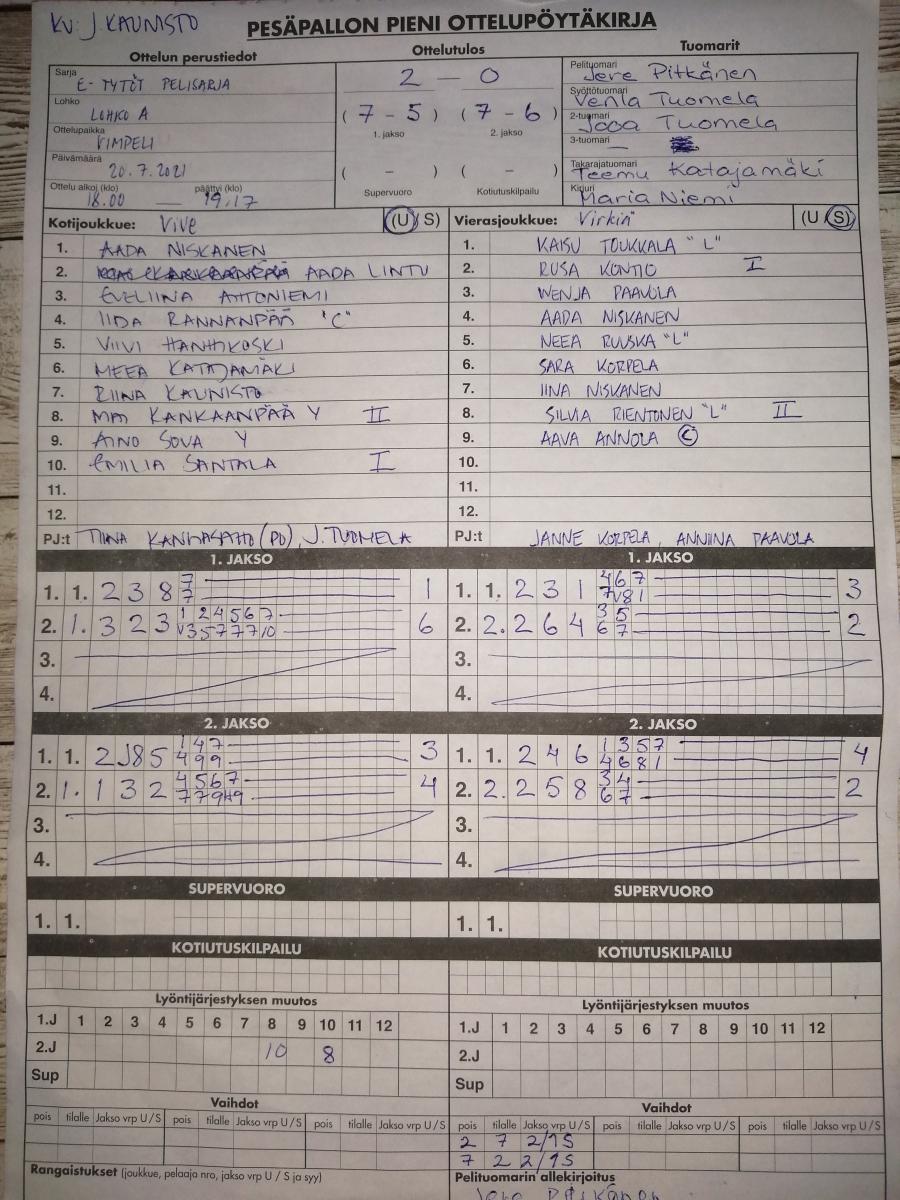 KV: J. KAUNISTO
PESÄPALLON PIENI OTTELUPÖYTÄKIRJA
Ottelun perustiedot
Sarja
E-TYTÖT PELISARJA
Lohko
LOHKO A
Ottelupaikka
VIMPELI
Päivämäärä
20.7.2021
Ottelu alkoi (klo) päättyi (klo)
18.00 — 19.17
Ottelutulos
2 – 0
(7 – 5) (7 – 6)
1. jakso 2. jakso
( – ) ( – )
Supervuoro Kotiutuskilpailu
Tuomarit
Pelituomari
Jere Pitkänen
Syöttötuomari
Venla Tuomela
2-tuomari
Jooa Tuomela
3-tuomari
—
Takarajatuomari
Teemu Katajamäki
Kirjuri
Maria Niemi
Kotijoukkue: Vive (U / S)
1. AADA NISKANEN
2. AADA LINTU
3. EVELIINA AHTONIEMI
4. IIDA RANNANPÄÄ "C"
5. VIIVI HANHIKOSKI
6. MEEA KATAJAMÄKI
7. RIINA KAUNISTO
8. KANKAANPÄÄ Y II
9. AINO SOVA Y
10. EMILIA SANTALA I
11.
12.
PJ:t TIINA (PJ), J. TUOMELA
Vierasjoukkue: Virkiä (U / S)
1. KAISU TOUKKALA "L"
2. RUSA KONTIO I
3. WENJA PAAVOLA
4. AADA NISKANEN
5. NEEA RUUSKA "L"
6. SARA KORPELA
7. IINA NISKANEN
8. SILVIA RIENTONEN "L" II
9. AAVA ANNOLA C
10.
11.
12.
PJ:t JANNE KORPELA, ANNIINA PAAVOLA
1. JAKSO
1. 1. 2 3 8 7 1
7
2. 1. 3 2 3 1 2 4 5 6 7 6
V 3 5 7 7 7 10
3.
4.
1. JAKSO
1. 1. 2 3 1 4 6 7 3
7 V8 1
2. 2. 2 6 4 3 5 2
6 7
3.
4.
2. JAKSO
1. 1. 2 J8 5 1 4 7 3
4 9 9
2. 1. 1 3 2 4 5 6 7 4
7 7 9
3.
4.
2. JAKSO
1. 1. 2 4 6 1 3 5 7 4
4 6 8 1
2. 2. 2 5 8 3 4 2
6 7
3.
4.
SUPERVUORO
1. 1.
SUPERVUORO
1. 1.
KOTIUTUSKILPAILU
KOTIUTUSKILPAILU
Lyöntijärjestyksen muutos
1.J 1 2 3 4 5 6 7 8 9 10 11 12
2.J 10 8
Sup
Lyöntijärjestyksen muutos
1.J 1 2 3 4 5 6 7 8 9 10 11 12
2.J
Sup
Vaihdot
pois tilalle Jakso vrp U / S pois tilalle Jakso vrp U / S pois tilalle Jakso vrp U / S
Vaihdot
pois tilalle Jakso vrp U / S pois tilalle Jakso vrp U / S pois tilalle Jakso vrp U / S
2 7 2/1S
7 2 2/1S
Rangaistukset (joukkue, pelaaja nro, jakso vrp U / S ja syy)
Pelituomarin allekirjoitus
Jere Pitkänen